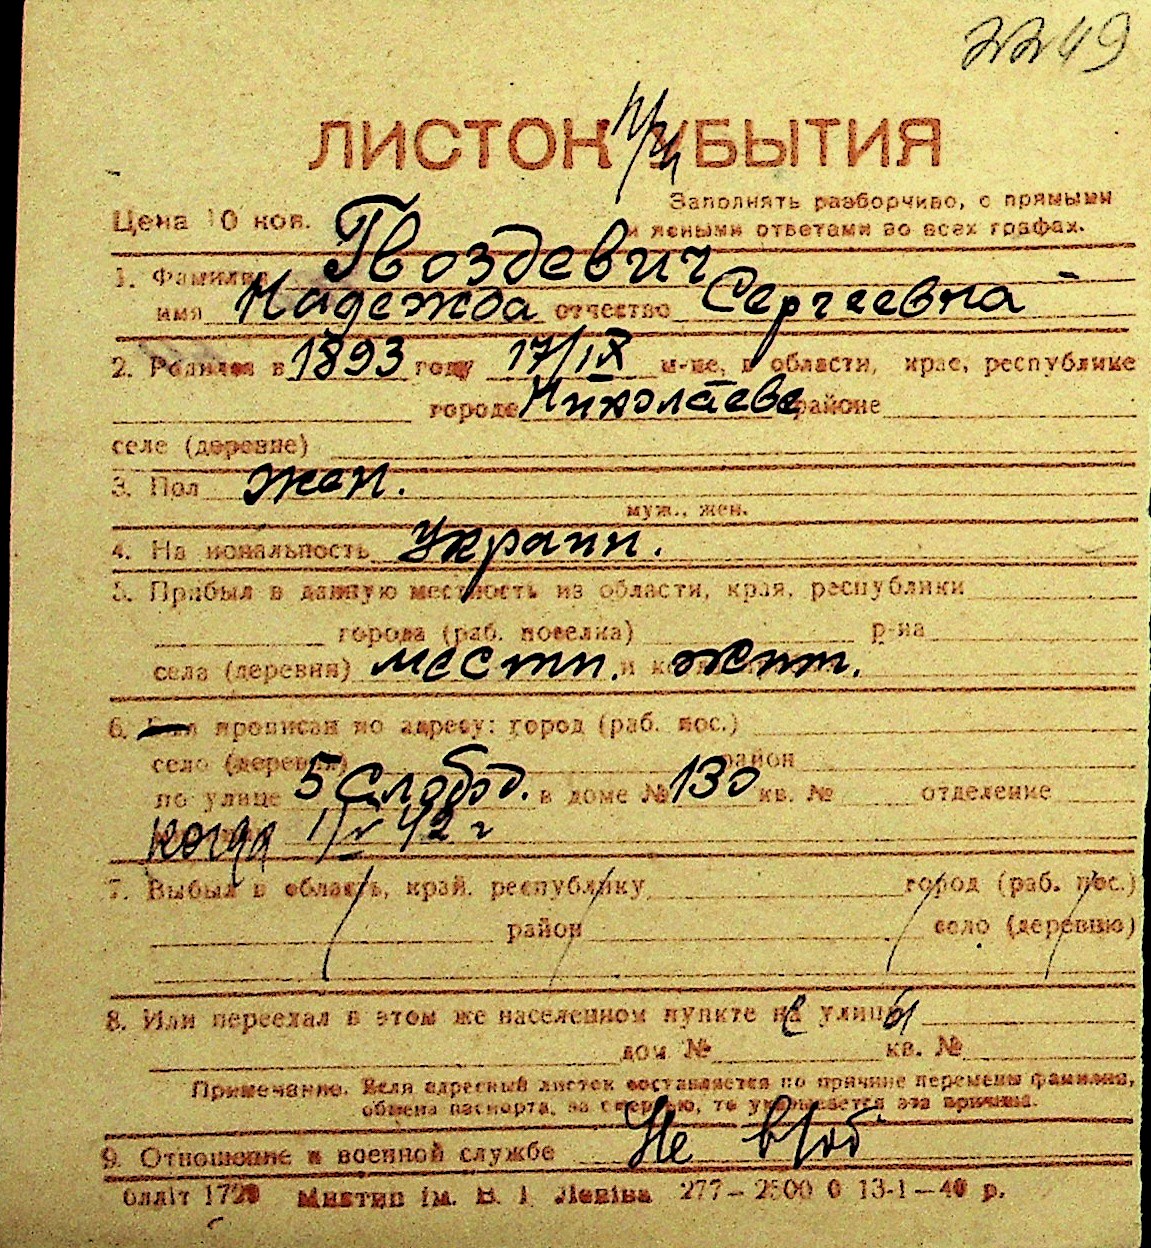 2249
ЛИСТОК УБЫТИЯ
Цена 10 коп.
Заполнять разборчиво, с прямыми
и ясными ответами во всех графах.
1. Фамилия Гвоздевич
имя Надежда отчество Сергеевна
2. Родился в 1893 году 17/IX м-це, в области, крае, республике
городе Николаеве районе
селе (деревне)
3. Пол жен.
муж., жен.
4. Национальность Украин.
5. Прибыл в данную местность из области, края, республики
города (раб. поселка) р-на
села (деревни) местн. и жит.
6. прописан по адресу: город (раб. пос.)
село (деревня) район
по улице 5 Слобод. в доме № 130 кв. № отделение
когда 42 г
7. Выбыл в область, край, республику город (раб. пос.)
район село (деревню)
8. Или переехал в этом же населенном пункте улицы
дом № кв. №
Примечание. Если адресный листок составляется по причине перемены фамилии,
обмена паспорта, за смертью, то указывается эта причина.
9. Отношение к военной службе Не в/об
блліт 1720 Миктип ім. В. І. Леніна 277–2500 0 13-1–40 р.